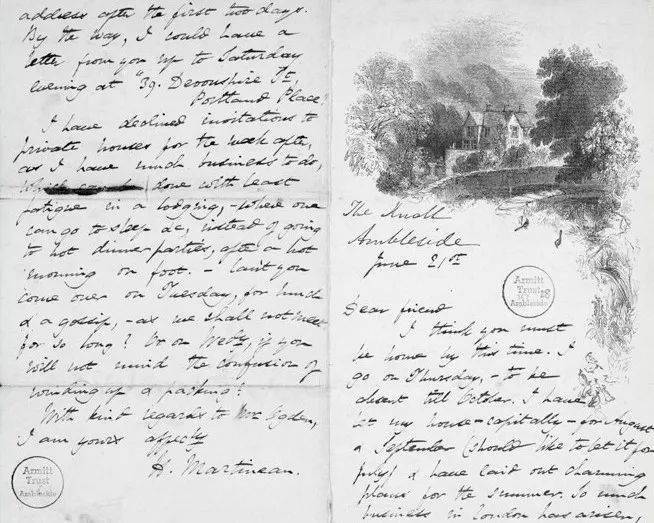 address after the first two days.
By the way, I could have a
letter from you up to Saturday
evening at "39. Devonshire St,
Portland Place."
I have declined invitations to
private houses for the week after,
as I have much business to do,
done with least
fatigue in a lodging, - where one
can go to sleep &c, instead of going
to hot dinner parties, after a hot
morning on foot. - Can't you
come over on Tuesday, for lunch
& a gossip, - as we shall not meet
for so long? Or on Wedy, if you
will not mind the confusion of
winding up & packing?
With kind regards to Mr Ogden,
I am yours affecty
H. Martineau.
Armitt
Trust
Ambleside
The Knoll
Ambleside
June 21st
Armitt
Trust
Ambleside
Dear friend
I think you must
be home by this time. I
go on Thursday, - to be
absent till October. I have
let my house - capitally - for August
& September (should like to let it for
July) & have laid out charming
plans for the summer. So much
business in London has arisen,